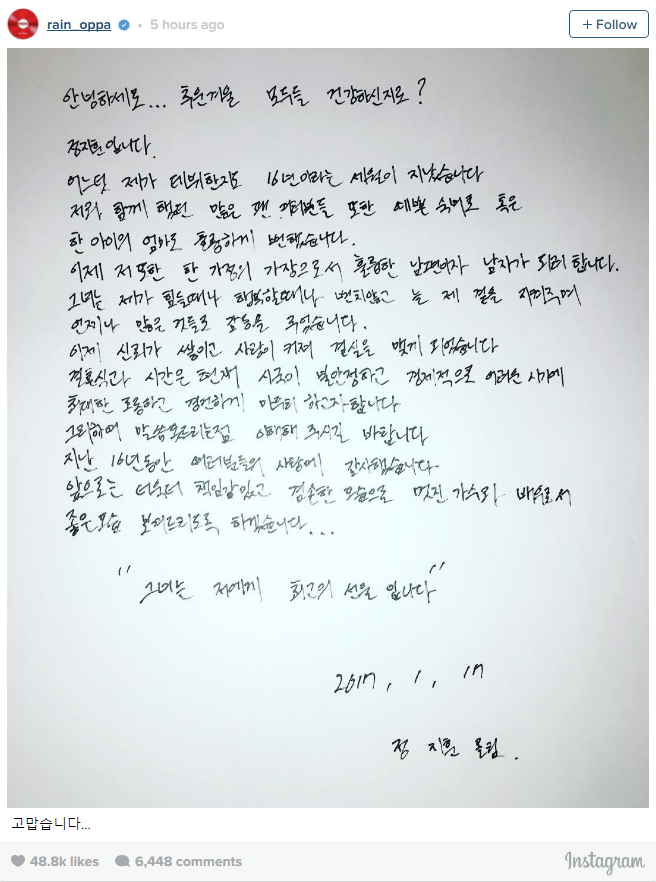 rain_oppa • 5 hours ago
+ Follow
안녕하세요... 추운겨울 모두들 건강하신지요?
정지훈입니다.
어느덧 제가 데뷔한지도 16년이라는 세월이 지났습니다
저와 함께 했던 많은 팬 여러분들 또한 예쁜 숙녀로 혹은
한 아이의 엄마로 훌륭하게 변했습니다.
이제 저 또한 한 가정의 가장으로서 훌륭한 남편이자 남자가 되려 합니다.
그녀는 제가 힘들때나 행복할때나 변치않고 늘 제 곁을 지켜주며
언제나 많은 것들로 감동을 주었습니다.
이제 신뢰가 쌓이고 사랑이 커져 결실을 맺게 되었습니다
결혼식과 시간은 현재 시국이 불안정하고 경제적으로 어려운 시기에
최대한 조용하고 경건하게 마무리 하고자합니다
그리하여 말씀못드리는점 이해해 주시길 바랍니다
지난 16년동안 여러분들의 사랑에 감사했습니다.
앞으로는 더욱더 책임감있고 겸손한 모습으로 멋진 가수와 배우로서
좋은모습 보여드리도록 하겠습니다...
"그녀는 저에게 최고의 선물 입니다"
2017, 1, 17
정 지훈 올림.
고맙습니다...
48.8k likes 6,448 comments
Instagram